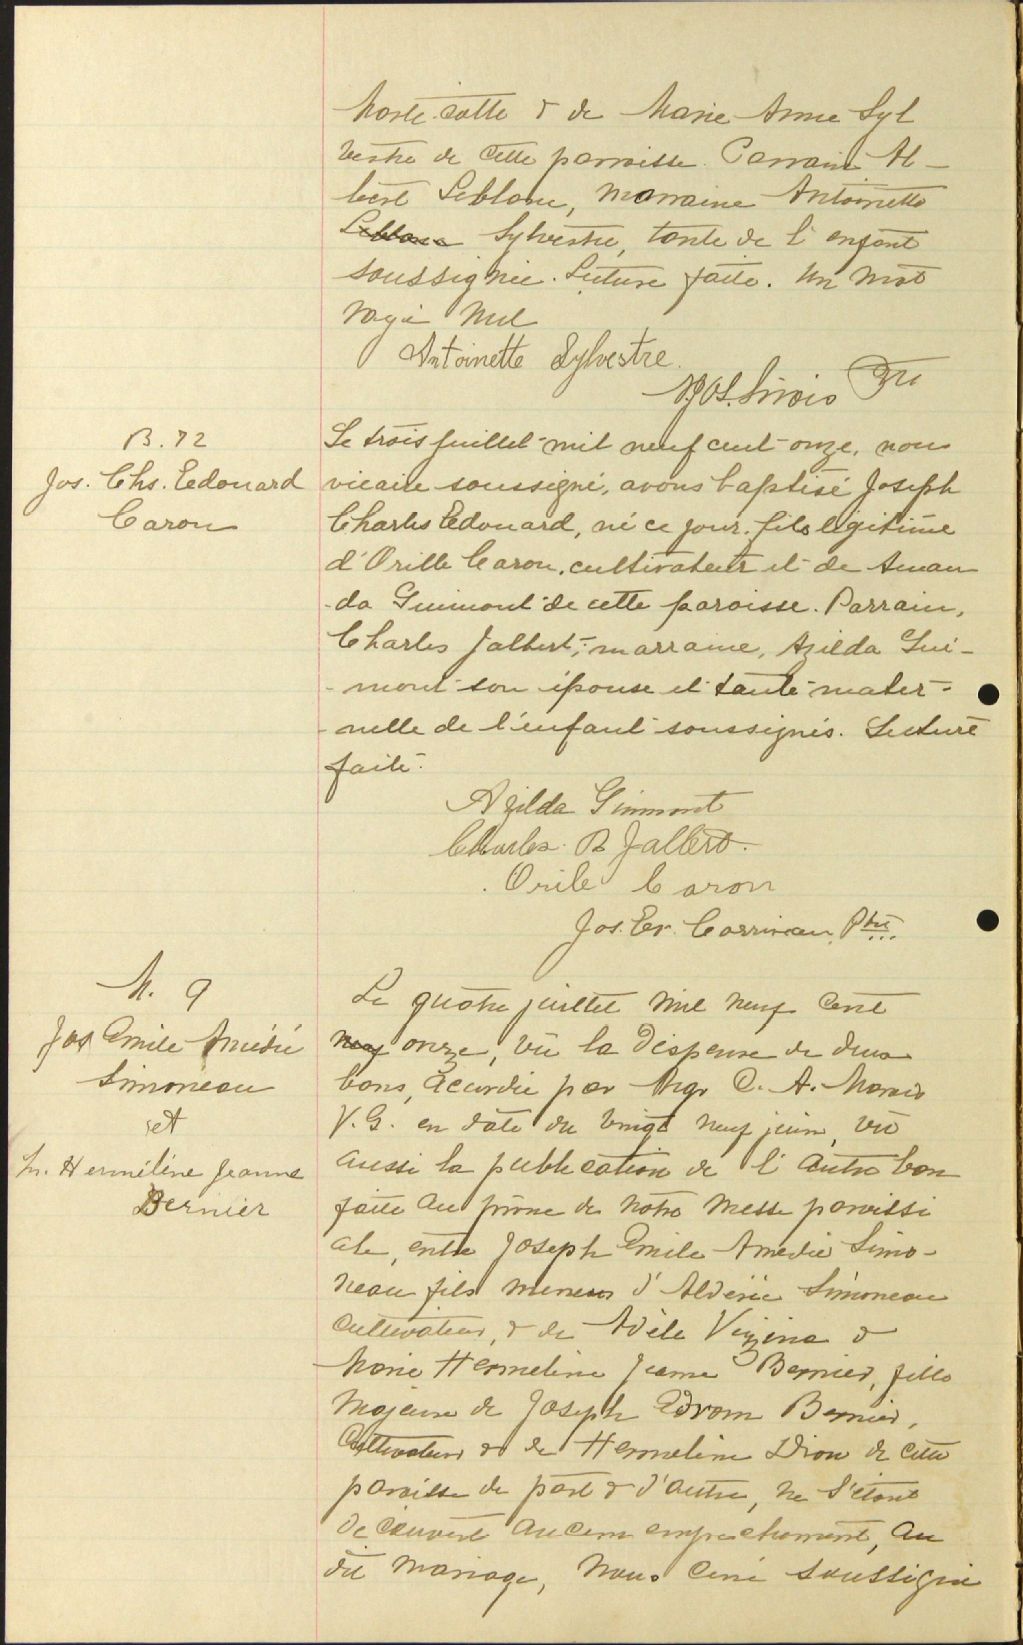 & de Marie Anne Syl
vestre de cette parroisse. Parrain Al-
bert Leblanc, marraine Antoinette
Leblanc Sylvestre, tante de l'enfant
soussignée. Lecture faite. Un mot
rayé nul
Antoinette Sylvestre.
Ptre
B. 72
Jos. Chs. Edouard
Caron
Le trois juillet mil neuf cent onze, nous
vicaire soussigné, avons baptisé Joseph
Charles Edouard, né ce jour, fils légitime
d'Orille Caron, cultivateur et de Aman
-da Guimont de cette paroisse. Parrain,
Charles Jalbert, marraine, Azilda Gui-
-mont son épouse et tante mater-
-nelle de l'enfant soussignés. Lecture
faite.
Azilda Guimont
Charles B Jalbert.
Orile Caron
Jos. Ev. Corriveau, Ptre
M. 9
Jos Emile Amédé
Simoneau
et
M. Herméline Jeanne
Bernier
Le quatre juillet mil neuf cent
neuf onze, vu la dispense de deux
bans, accordée par Mgr C. A. Marois
V.G. en date du vingt neuf juin, vu
aussi la publication de l'autre ban
faite au prône de notre messe paroissi
ale, entre Joseph Emile Amédée Simo-
neau fils mineur d'Aldéric Simoneau
cultivateur, & de Adèle Vézina &
Marie Hermeline Jeanne Bernier, fille
majeure de Joseph Bernier,
cultivateur & de Hermeline Dion de cette
paroisse de part & d'autre, ne s'étant
découvert aucun empechement, au
dit mariage, Nous curé soussigné